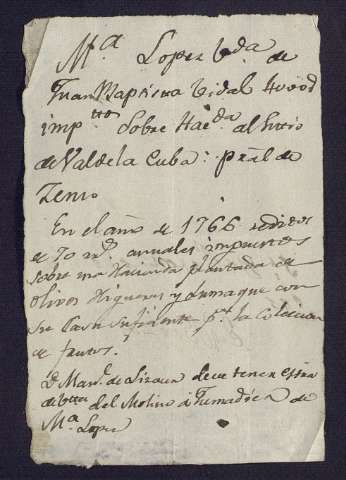 Mª Lopez Vda de
Juan Baptista Vidal
imptos Sobre Hazda al Sitio
de Valdela Cuba: pral de
Zenso
En el año de 1766 reditos
de 70 rs anuales impuestos
sobre una Hacienda plantada de
olivos Higueras y dumaque con
su Casa suficiente pª la Coleccion
de frutos.
Dn Manl de Lizaur deve tener
del Molino de
Mª Lopez